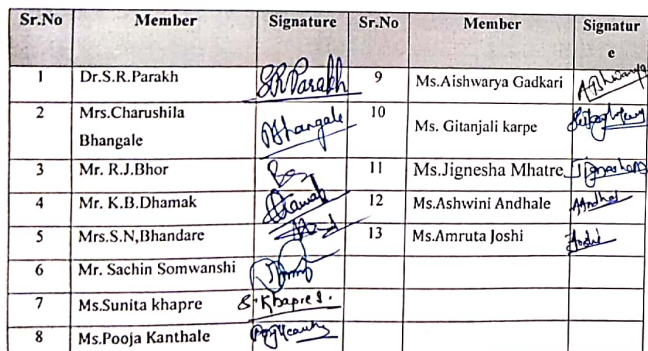 Sr.No Member Signature Sr.No Member Signatur
e
1 Dr.S.R.Parakh SRParakh 9 Ms.Aishwarya Gadkari
2 Mrs.Charushila
Bhangale Bhangale 10 Ms. Gitanjali karpe
3 Mr. R.J.Bhor 11 Ms.Jignesha Mhatre
4 Mr. K.B.Dhamak 12 Ms.Ashwini Andhale
5 Mrs.S.N,Bhandare 13 Ms.Amruta Joshi Joshi
6 Mr. Sachin Somwanshi
7 Ms.Sunita khapre S. Khapre S.
8 Ms.Pooja Kanthale